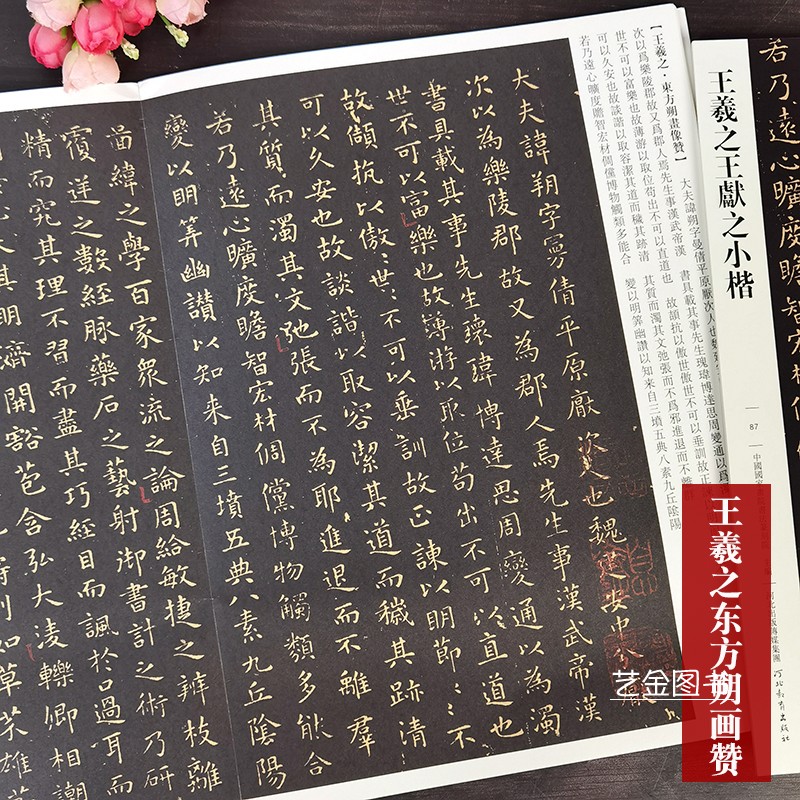 王羲之王獻之小楷
87
【王羲之·東方朔畫像贊】
大夫諱朔字曼倩平原厭次人也魏建
次以爲樂陵郡故又爲郡人焉先生事漢武帝漢
書具載其事先生瑰瑋博達思周變通以爲
世不可以富樂也故薄游以取位苟出不可以直道也
故頡抗以傲世傲世不可以垂訓故正
可以久安也故談諧以取容潔其道而穢其跡清
其質而濁其文弛張而不爲邪進退而不離
若乃遠心曠度贍智宏材倜儻博物觸類多能合
變以明筭幽讚以知来自三墳五典八素九丘陰陽
大夫諱朔字曼倩平原厭次人也魏建安中分厭
次以為樂陵郡故又為郡人焉先生事漢武帝漢
書具載其事先生瓌瑋博達思周變通以為濁
世不可以富樂也故薄游以取位苟出不可以直道也
故傾抗以傲世〻不可以垂訓故正諫以明節〻〻不
可以久安也故談諧以取容潔其道而穢其跡清
其質而濁其文弛張而不為耶進退而不離群
若乃遠心曠度贍智宏材倜儻博物觸類多能合
變以明筭幽讚以知来自三墳五典八素九丘陰陽
啚緯之學百家衆流之論周給敏捷之辨枝離
覆逆之數經脉藥石之藝射御書計之術乃研
精而究其理不習而盡其巧經目而諷於口過耳而
其明濟開豁苞含弘大凌轢卿相潮
若乃遠心曠度贍智宏材
王羲之东方朔画赞
艺金图书
河北教育出版社